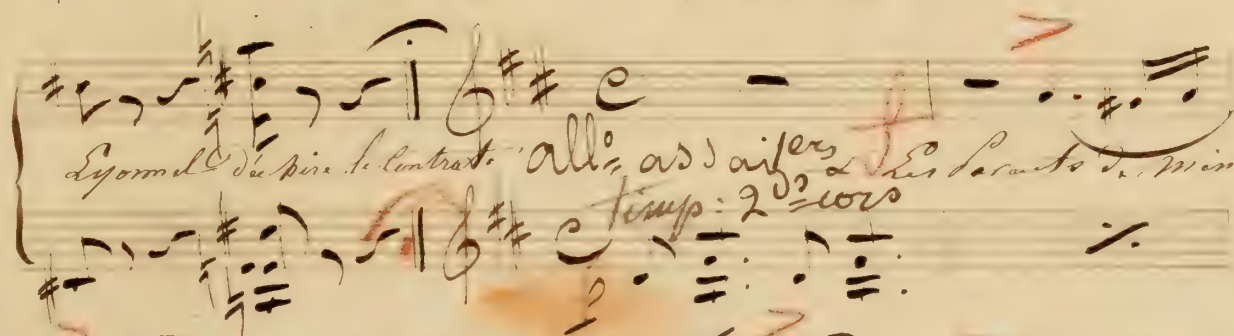 Lyonnel déchire le contrat. all.º assai 1ers & Les Parents de
timp: 2ds cors